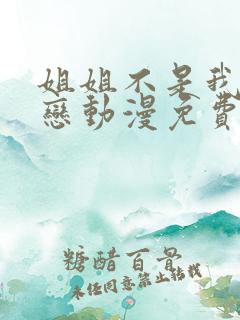 姐姐不是我
戀動漫免費
糖醋百骨
未经同意禁止转载